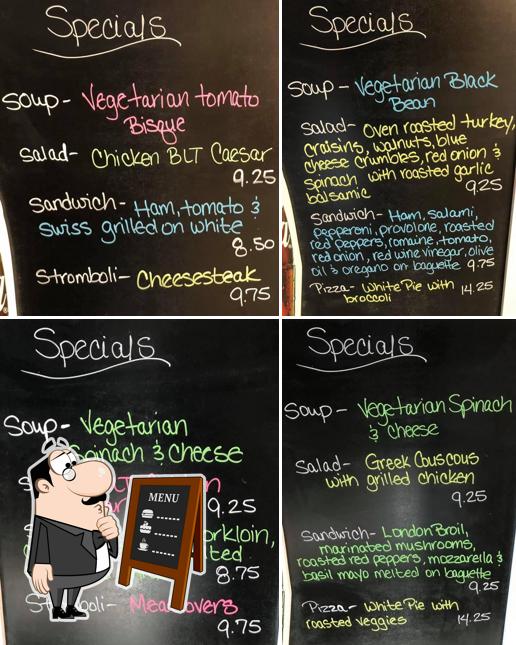 Specials
Soup - Vegetarian tomato
Bisque
Salad - Chicken BLT Caesar
9.25
Sandwich - Ham, tomato &
swiss grilled on white
8.50
Stromboli - Cheesesteak
9.75
Specials
Soup - Vegetarian Black
Bean
Salad - Oven roasted turkey,
craisins, walnuts, blue
cheese crumbles, red onion &
spinach with roasted garlic
balsamic 9.25
Sandwich - Ham, salami,
pepperoni, provolone, roasted
red peppers, romaine, tomato,
red onion, red wine vinegar, olive
oil & oregano on baguette 9.75
Pizza - White Pie with 14.25
broccoli
Specials
Soup - Vegetarian
Spinach & Cheese
9.25
8.75
9.75
MENU
Specials
Soup - Vegetarian Spinach
& Cheese
Salad - Greek Couscous
with grilled chicken
9.25
Sandwich - London Broil,
marinated mushrooms,
roasted red peppers, mozzarella &
basil mayo melted on baguette
9.25
Pizza - White Pie with
roasted veggies 14.25